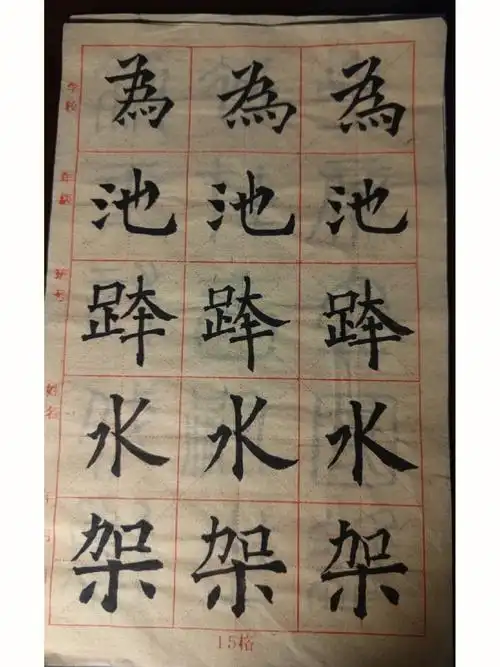 学校
為 為 為
年级
池 池 池
学号
跨 跨 跨
姓名
水 水 水
架 架 架
15格